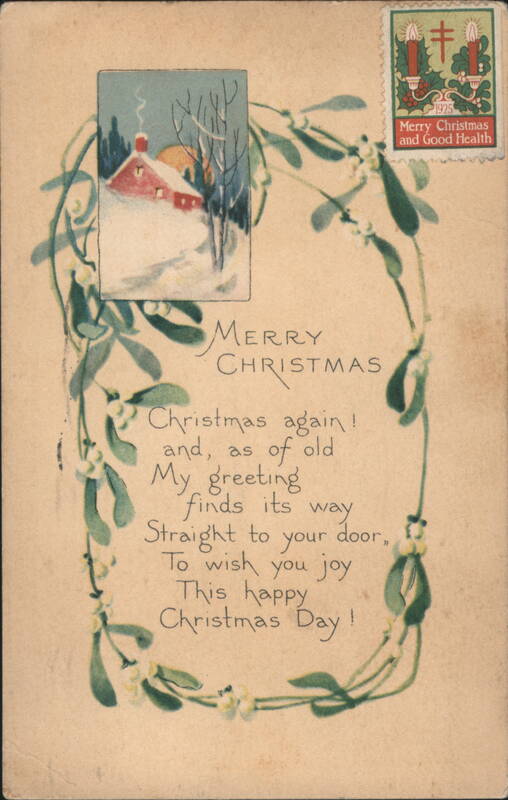 1925
Merry Christmas
and Good Health
MERRY
CHRISTMAS
Christmas again!
and, as of old
My greeting
finds its way
Straight to your door,,
To wish you joy
This happy
Christmas Day!